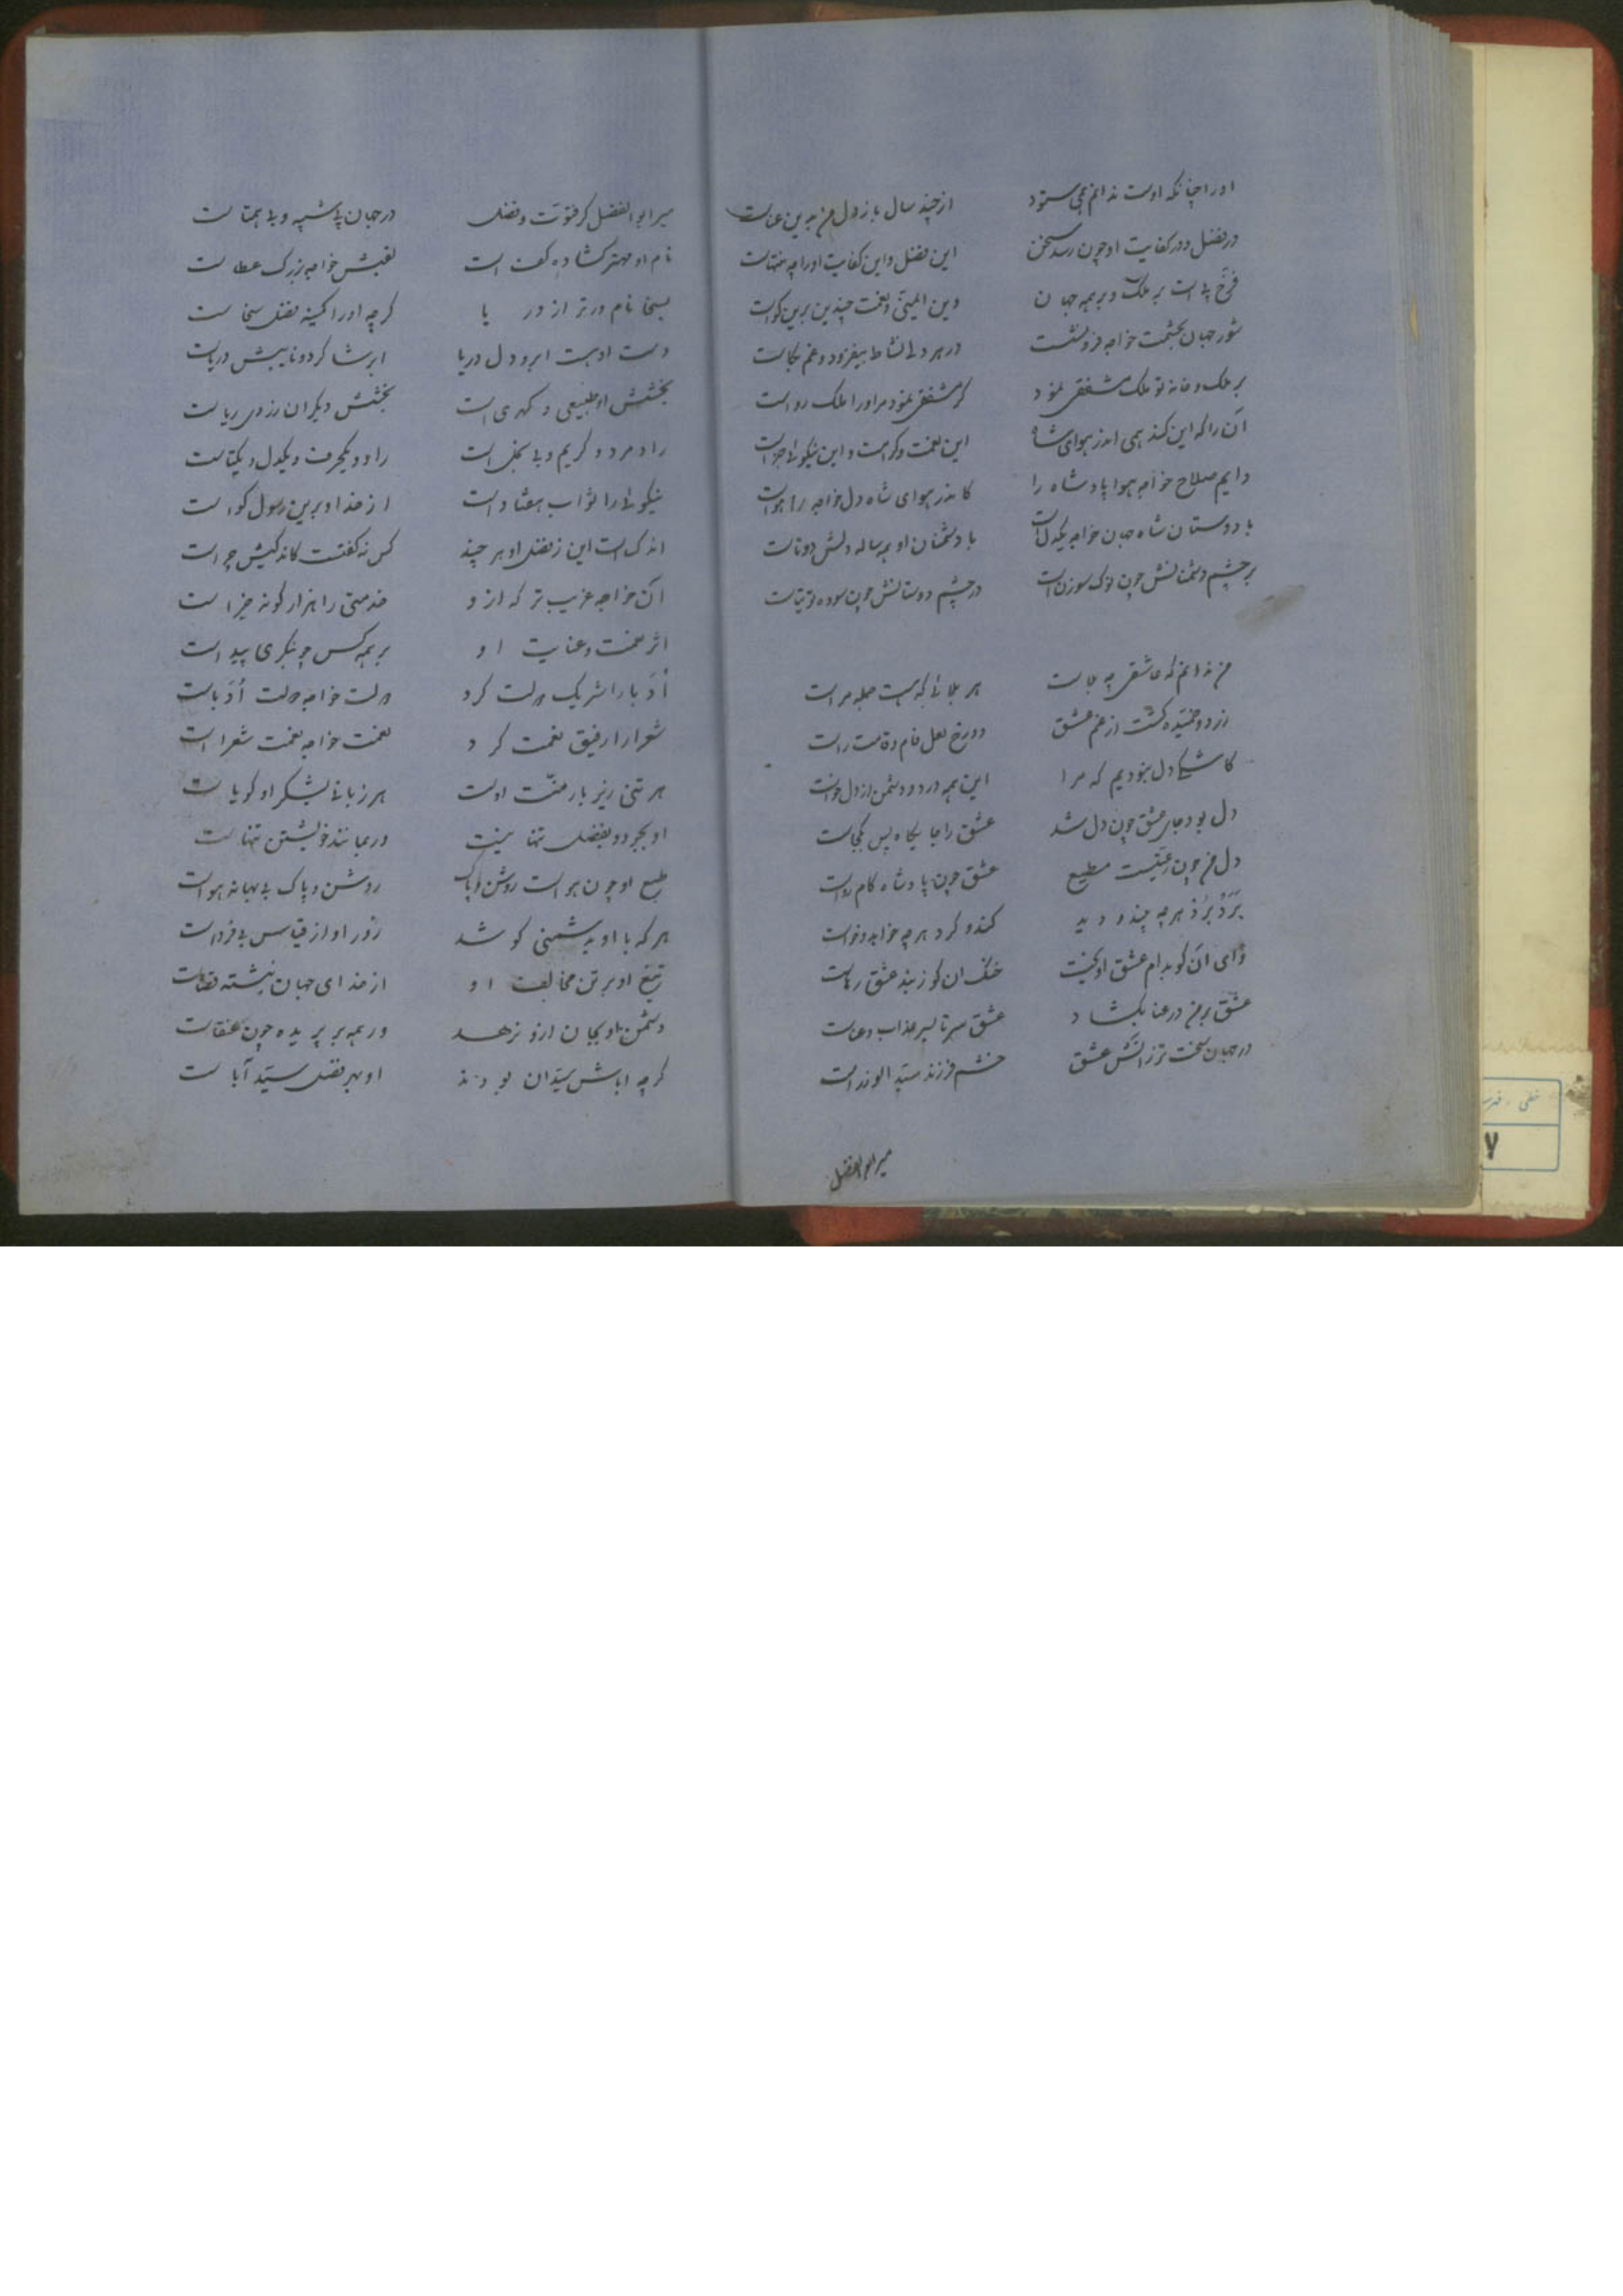 اورا چنانکه اوست ندانم همی ستود از چند سال باز دل من بدین عناست
در فضل و در کفایت او چون رسد سخن این فضل و این کفایت اورا چه منتهاست
فرّخ پی است بر ملک و بر همه جهان وین ایمنی و نعمت چندین برین گواست
شور جهان بحشمت خواجه فرونشست در هر دلی نشاط بیفزود و غم بکاست
بر ملک و خانه تو ملک مشفقی نمود گر مشفقی نمود مراورا ملک رواست
آن را که این کند همی اندر هوای شاه این نعمت و کرامت و این نیکوئی جزاست
دایم صلاح خواجه هوا پادشاه را کاندر هوای شاه دل خواجه را هواست
با دوستان شاه جهان خواجه یکدل است با دشمنان او همه ساله دلش دوتاست
بر چشم دشمنانش چون نوک سوزن است در چشم دوستانش چون سوده توتیاست
من ندانم که عاشقی چه بلاست هر بلائی که هست جمله مراست
زرد و خمیده گشت از غم عشق دو رخ لعل فام و قامت راست
کاشکی دل نبودیم که مرا این همه درد و دشمن از دل خواست
دل بود جای عشق چون دل شد عشق را جایگاه پس بکجاست
دل من چون رعیتیست مطیع عشق چون پادشاه کام رواست
بَرَدْ بَرَدْ هر چه بیند و دید کند و کرد هر چه خواهد و خواست
وای آن کو بدام عشق اویخت خنک ان کو ز بند عشق رهاست
عشق بر من در عنا بگشاد عشق سر تا بسر عذاب و عناست
در جهان سخت تر ز اتش عشق خشم فرزند سیّد الوزراست
میر ابوالفضل
میر ابوالفضل کز فتوّت و فضل در جهان بی شبیه و بی همتاست
نام او مهتر گشاده کف است لقبش خواجه بزرگ عطاست
بسخا نام ورتر از دریا گرچه اورا کمینه فضل سخاست
دست او هست ابر و دل دریا ابر شاگرد و نایبش دریاست
بخشش او طبیعی و گهری است بخشش دیگران ز روی ریاست
راد مرد و کریم و بی خلل است راد و یکحرف و یکدل و یکتاست
نیکوئی را ثواب هفتاد است از خدا و برین رسول گواست
اندک است این ز فضل او هر چند کس نه گفتست کاندکیش چراست
آن خواجه غریب تر که ازو خدمتی را هزار گونه جزاست
اثر نعمت و عنایت او بر همه کس چو بنگری پیداست
اُدَبا را شریک دولت کرد دولت خواجه دولت اُدَباست
شعرا را رفیق نعمت کرد نعمت خواجه نعمت شعراست
هر تنی زیر بار منّت اوست هر زبانی بشکر او گویاست
او بجود و بفضل تنها نیست در همانند خویشتن تنهاست
طبع او چون هواست روشن و پاک روشن و پاک بی بهانه هواست
هر که با او بدشمنی کوشد زور او از قیاس بی فرداست
تیغ او بر تن مخالف او از خدای جهان نبشته قضاست
دشمن او بجان ازو نرهد ور همه بر پریده چون عنقاست
گرچه اباش سیّدان بودند او بهر فضل سیّد آباست
خطی
۷